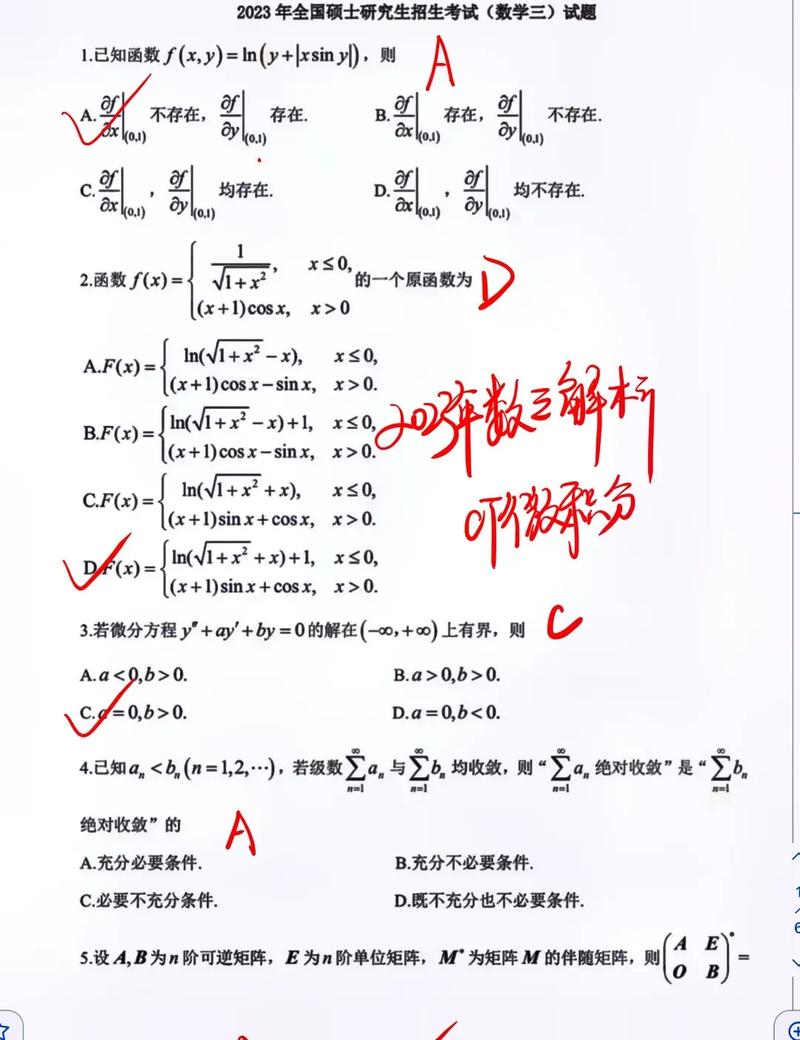 2023年全国硕士研究生招生考试（数学三）试题
1.已知函数 f(x,y)=ln(y+|xsin y|)，则 A
A. ∂f/∂x|(0,1) 不存在，∂f/∂y|(0,1) 存在. B. ∂f/∂x|(0,1) 存在，∂f/∂y|(0,1) 不存在.
C. ∂f/∂x|(0,1) ，∂f/∂y|(0,1) 均存在. D. ∂f/∂x|(0,1) ，∂f/∂y|(0,1) 均不存在.
2.函数 f(x)={1/√(1+x²), x≤0, (x+1)cosx, x>0 的一个原函数为 D
A.F(x)={ln(√(1+x²)−x), x≤0, (x+1)cosx−sinx, x>0.
B.F(x)={ln(√(1+x²)−x)+1, x≤0, (x+1)cosx−sinx, x>0.
2023年数三解析
C.F(x)={ln(√(1+x²)+x), x≤0, (x+1)sinx+cosx, x>0.
微积分
D.F(x)={ln(√(1+x²)+x)+1, x≤0, (x+1)sinx+cosx, x>0.
3.若微分方程 y″+ay′+by=0的解在(−∞,+∞)上有界，则 C
A.a<0,b>0. B.a>0,b>0.
C.a=0,b>0. D.a=0,b<0.
4.已知aₙ<bₙ(n=1,2,⋯)，若级数∑(n=1→∞)aₙ与∑(n=1→∞)bₙ均收敛，则“∑(n=1→∞)aₙ绝对收敛”是“∑(n=1→∞)bₙ
绝对收敛”的 A
A.充分必要条件. B.充分不必要条件.
C.必要不充分条件. D.既不充分也不必要条件.
5.设A,B为n阶可逆矩阵，E为n阶单位矩阵，M*为矩阵M的伴随矩阵，则(A E; O B)*=